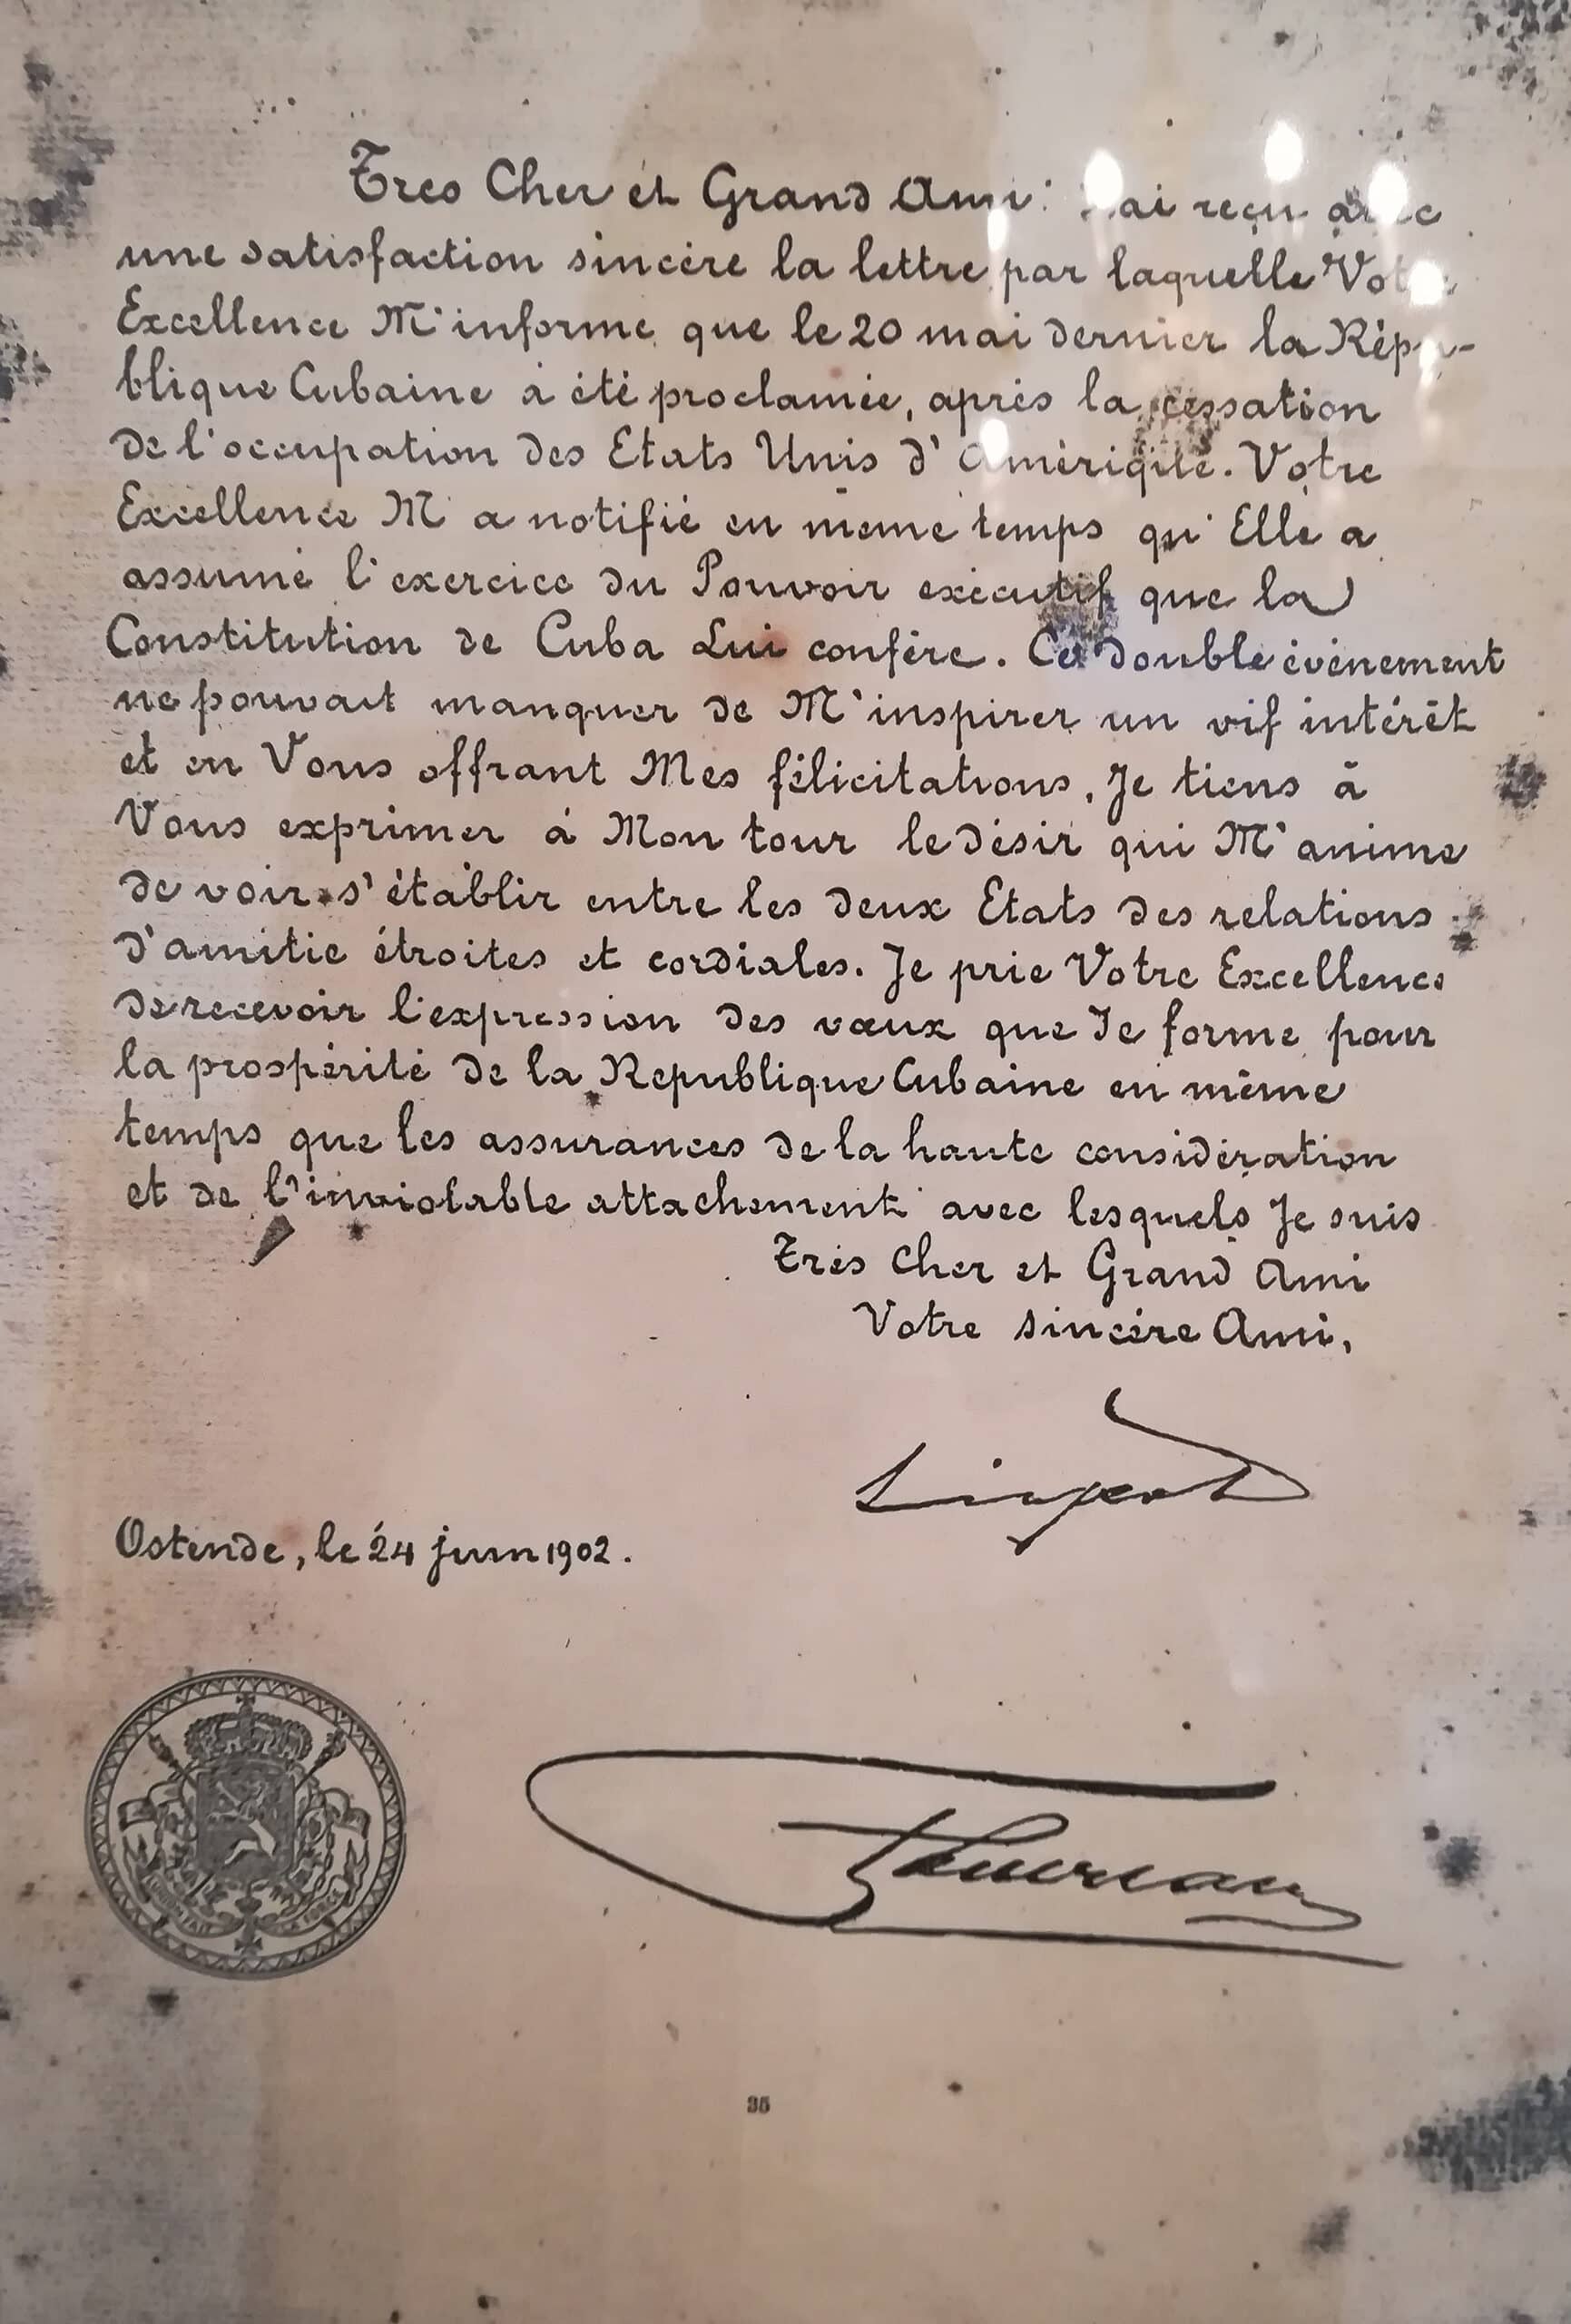 Tres Cher et Grand Ami: J'ai reçu avec
une satisfaction sincère la lettre par laquelle Votre
Excellence M'informe que le 20 mai dernier la Répu-
blique Cubaine a été proclamée, après la cessation
de l'occupation des Etats Unis d'Amérique. Votre
Excellence M'a notifié en même temps qu'Elle a
assumé l'exercice du Pouvoir exécutif que la
Constitution de Cuba Lui confère. Ce double événement
ne pouvait manquer de M'inspirer un vif intérêt
et en Vous offrant Mes félicitations, Je tiens à
Vous exprimer à Mon tour le désir qui M'anime
de voir s'établir entre les deux Etats des relations
d'amitié étroites et cordiales. Je prie Votre Excellence
de recevoir l'expression des vœux que Je forme pour
la prospérité de la Republique Cubaine en même
temps que les assurances de la haute considération
et de l'inviolable attachement avec lesquels Je suis
Très Cher et Grand Ami
Votre sincère Ami,
Ostende, le 24 juin 1902.
35